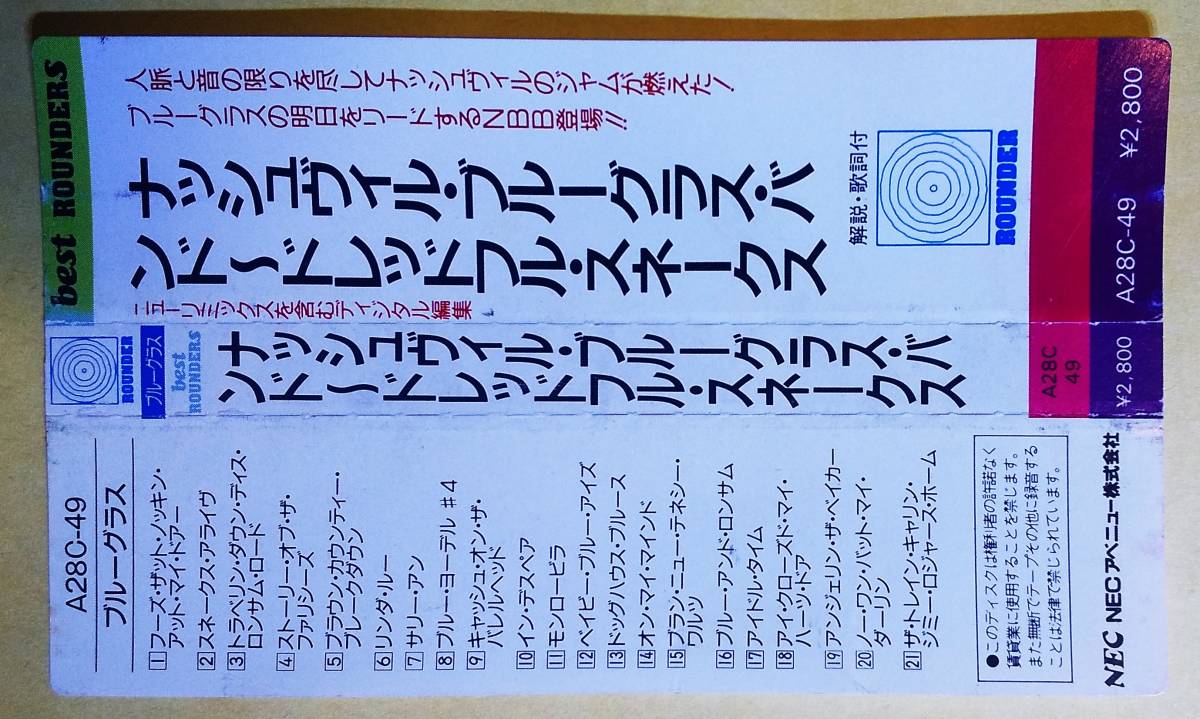 best ROUNDERS
人脈と音の限りを尽してナッシュヴィルのジャムが燃えた!
ブルーグラスの明日をリードするNBB登場!!
ナッシュヴィル・ブルーグラス・バ
ンド〜ドレッドフル・スネークス
ニューリミックスを含むディジタル編集
解説・歌詞付
ROUNDER
A28C-49 ¥2,800
ROUNDER
ブルーグラス
best
ROUNDERS
ナッシュヴィル・ブルーグラス・バ
ンド〜ドレッドフル・スネークス
A28C
49
¥2,800
A28C-49
ブルーグラス
1 フーズ・ザット・ノッキン・
アット・マイ・ドアー
2 スネークス・アライヴ
3 トラベリン・ダウン・ディス・
ロンサム・ロード
4 ストーリー・オブ・ザ・
ファリシーズ
5 ブラウン・カウンティー・
ブレークダウン
6 リンダ・ルー
7 サリー・アン
8 ブルー・ヨーデル #4
9 キャッシュ・オン・ザ・
バレルヘッド
10 イン・デスペア
11 モンロービラ
12 ベイビー・ブルー・アイズ
13 ドッグハウス・ブルース
14 オン・マイ・マインド
15 ブラン・ニュー・テネシー・
ワルツ
16 ブルー・アンド・ロンサム
17 アイドル・タイム
18 アイ・クローズド・マイ・
ハーツ・ドア
19 アンジェリン・ザ・ベイカー
20 ノー・ワン・バット・マイ・
ダーリン
21 ザ・トレイン・キャリン・
ジミー・ロジャース・ホーム
●このディスクは権利者の許諾なく
賃貸業に使用することを禁じます。
また無断でテープその他に録音する
ことは法律で禁じられています。
NEC NECアベニュー株式会社